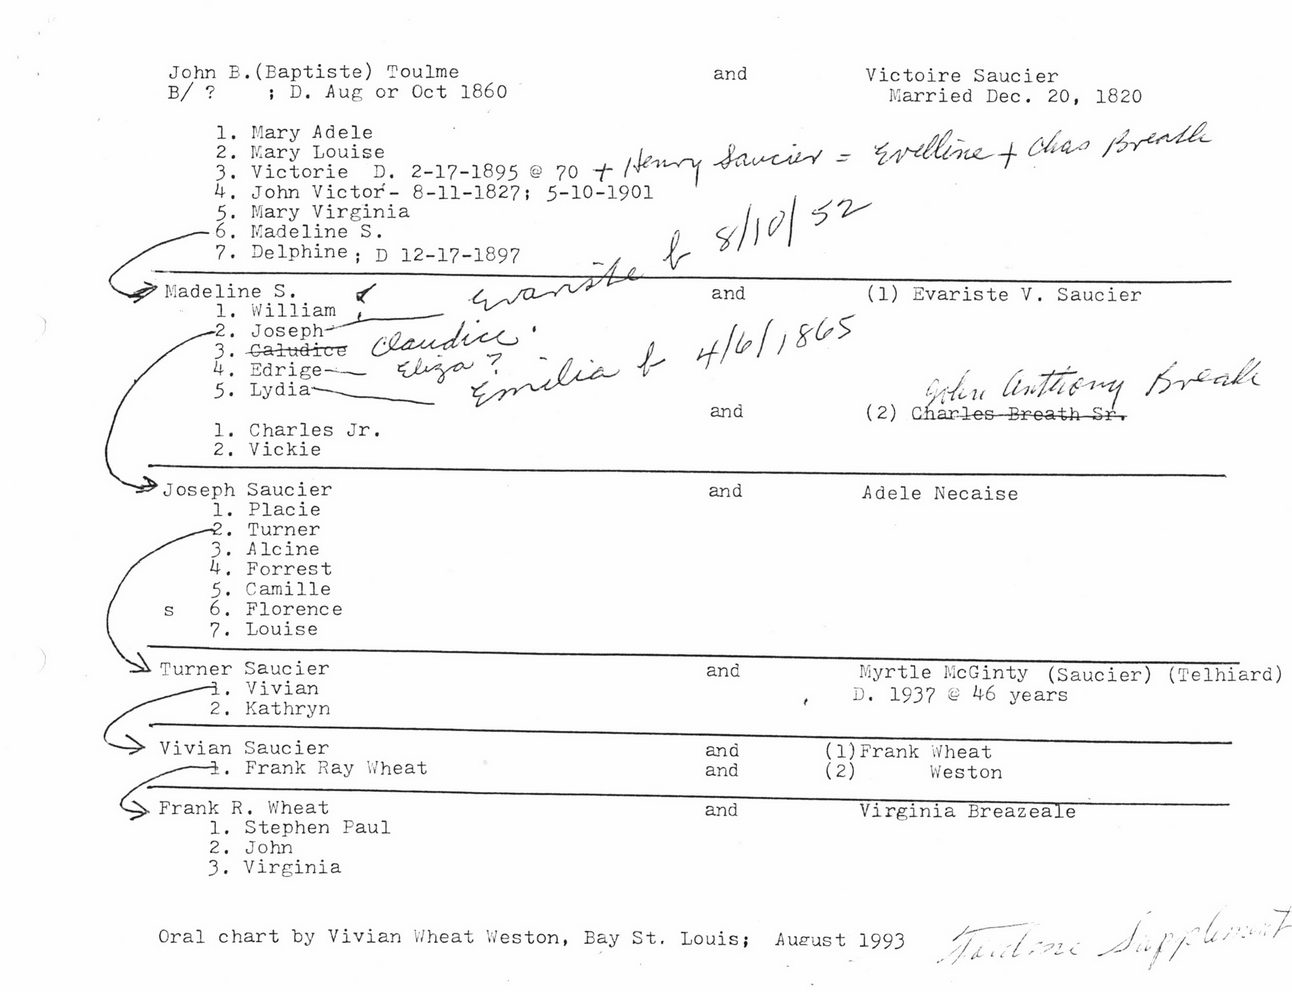 John B.(Baptiste) Toulme and Victoire Saucier
B/ ? ; D. Aug or Oct 1860 Married Dec. 20, 1820
1. Mary Adele
2. Mary Louise
3. Victorie D. 2-17-1895 @ 70 + Henry Saucier = Evelline + Chas Breath
4. John Victor- 8-11-1827; 5-10-1901
5. Mary Virginia
6. Madeline S.
7. Delphine; D 12-17-1897
Evariste b 8/10/52
Madeline S. and (1) Evariste V. Saucier
1. William
2. Joseph
3. Caludice Claudice
4. Edrige Eliza?
5. Lydia Emilia b 4/6/1865
John Anthony Breath
and (2) Charles Breath Sr.
1. Charles Jr.
2. Vickie
Joseph Saucier and Adele Necaise
1. Placie
2. Turner
3. Alcine
4. Forrest
5. Camille
s 6. Florence
7. Louise
Turner Saucier and Myrtle McGinty (Saucier) (Telhiard)
1. Vivian D. 1937 @ 46 years
2. Kathryn
Vivian Saucier and (1)Frank Wheat
1. Frank Ray Wheat and (2) Weston
Frank R. Wheat and Virginia Breazeale
1. Stephen Paul
2. John
3. Virginia
Oral chart by Vivian Wheat Weston, Bay St. Louis; August 1993 Supplement